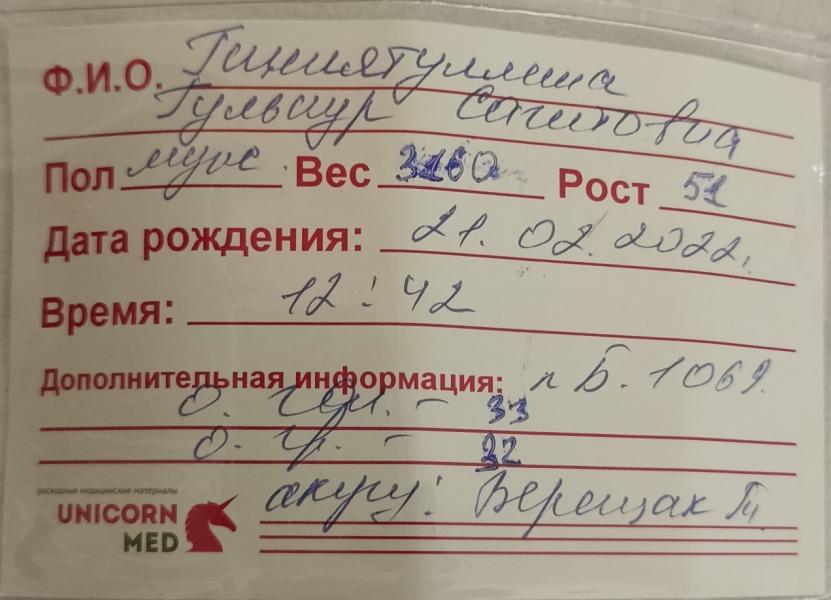 Ф.И.О. Гиниятуллина
Гульнур Сагитовна
Пол муж Вес 3160 Рост 51
Дата рождения: 21.02.2022.
Время: 12:42
Дополнительная информация: п Б. 1069.
о. гол. - 33
о. гр. - 32
расходные медицинские материалы
UNICORN
MED
акуш: Верещак